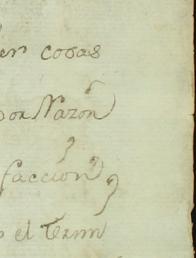 er cosas
por Razon
faccion
el Term